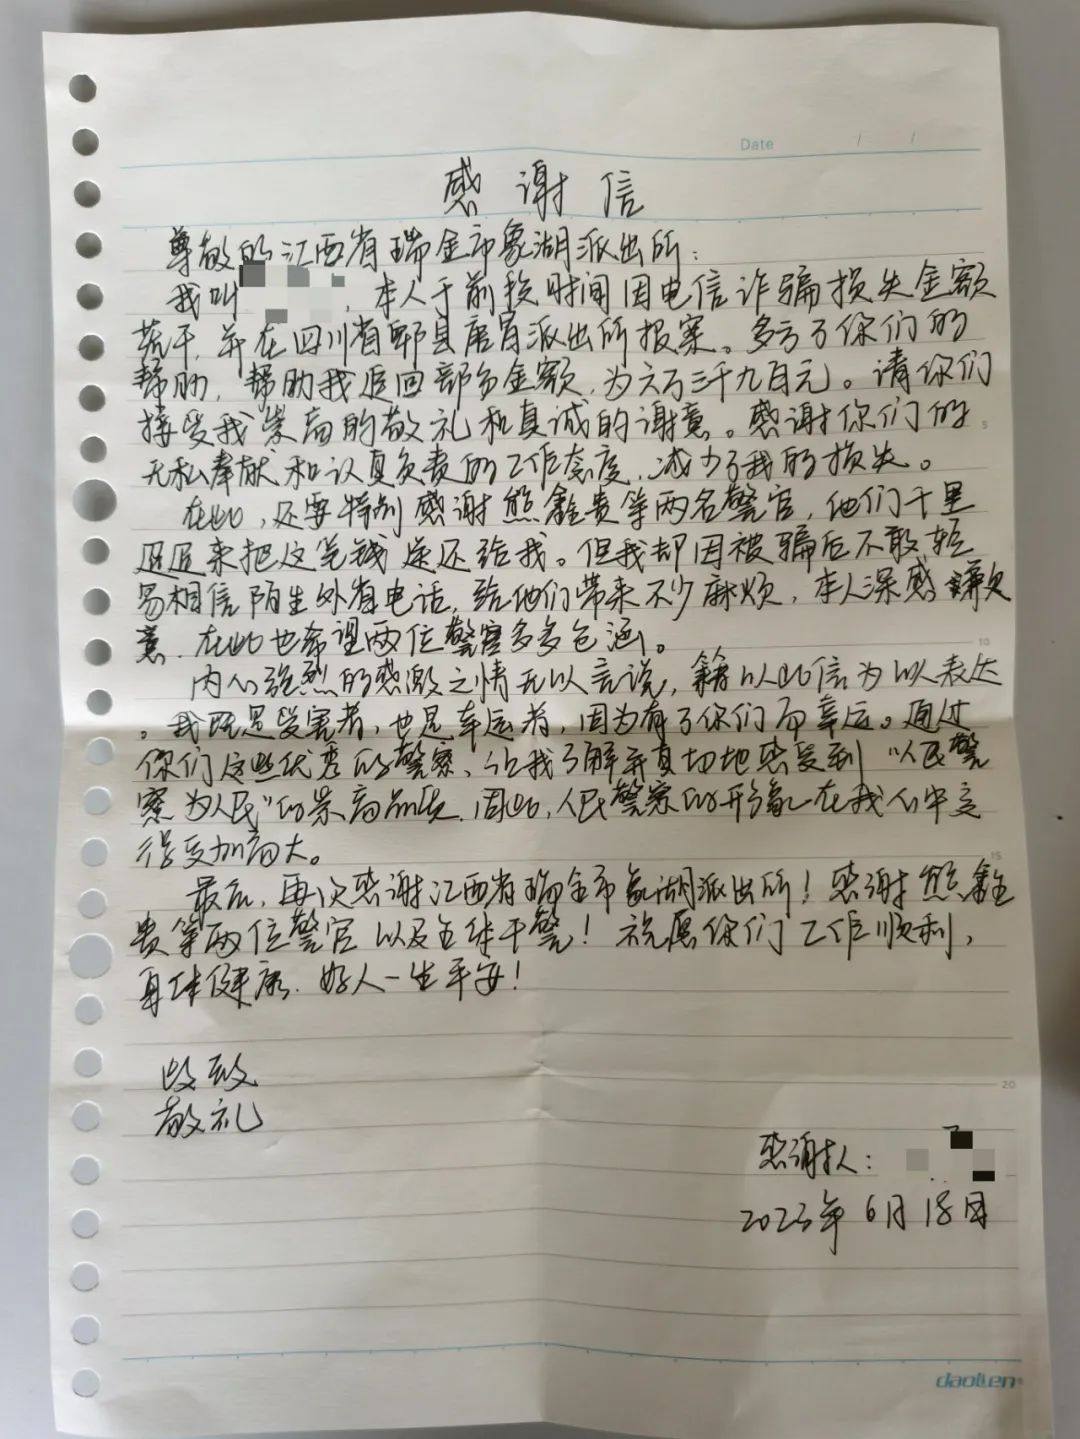 Date / /
感谢信
尊敬的江西省瑞金市象湖派出所：
我叫 ，本人于前段时间因电信诈骗损失金额
若干，并在四川省郫县唐昌派出所报案。多亏了你们的
帮助，帮助我追回部分金额，为六万三千九百元。请你们
接受我崇高的敬礼和真诚的谢意。感谢你们的
无私奉献和认真负责的工作态度，减少了我的损失。
在此，还要特别感谢熊鑫贵等两名警官，他们千里
迢迢来把这笔钱送还给我。但我却因被骗后不敢轻
易相信陌生外省电话，给他们带来不少麻烦，本人深感歉
意，在此也希望两位警官多多包涵。
内心强烈的感激之情无以言说，籍以此信为以表达
。我既是受害者，也是幸运者，因为有了你们而幸运。通过
你们这些优秀的警察，让我了解并真切地感受到“人民警
察为人民”的崇高品质，因此，人民警察的形象在我心中变
得更加高大。
最后，再次感谢江西省瑞金市象湖派出所！感谢熊鑫
贵等两位警官以及全体干警！祝愿你们工作顺利，
身体健康，好人一生平安！
此致
敬礼
感谢人：
2023年6月18日
5
10
15
20
daolien